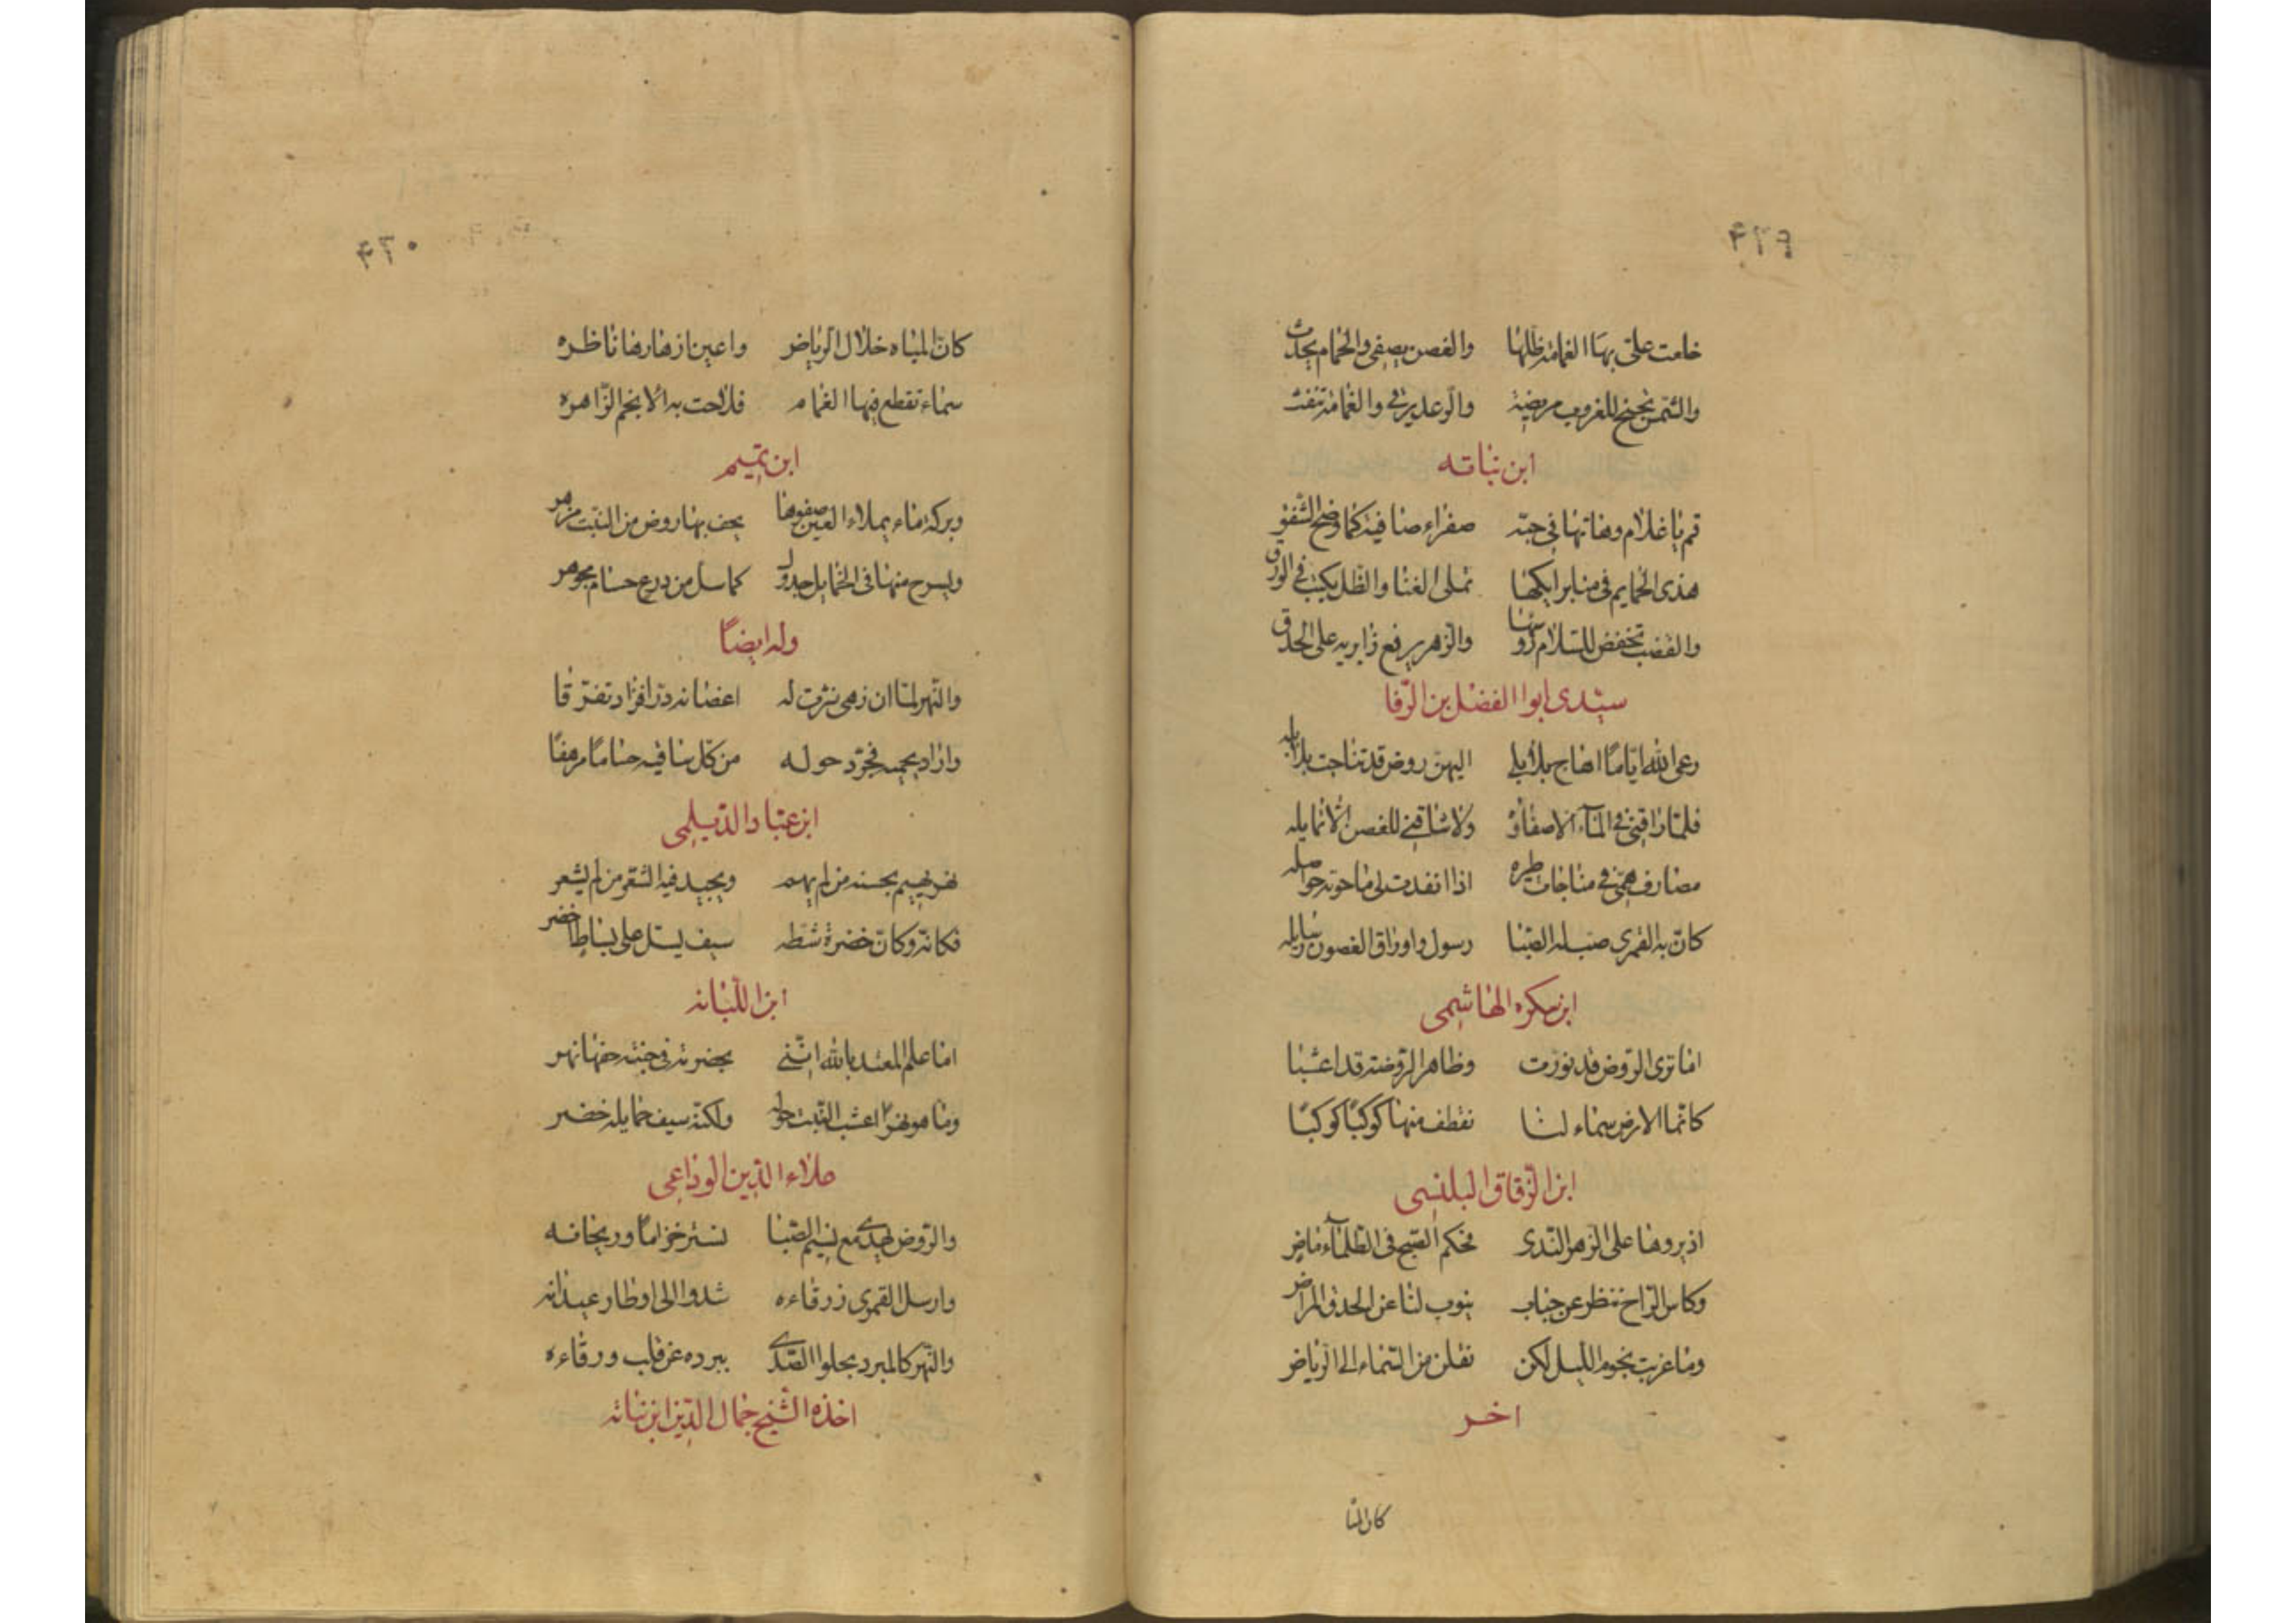 ۴۲۹
خلعت علیّ بها الغمامة ظلها والغصن يصغی والحمام يحدث
والشمس تجنح للغروب مريضة والرعد يرقی والغمامة تنفث
ابن نباته
قم يا غلام وهاتها فی جنة صفراء صافية كما وضح الشفق
هذی الحمايم فی منابر ايكها تملی الغنا والظل يكتب فی الورق
والقضب تخفض للسلام رؤسها والزهر يرفع زايريه علی الحدق
سيدی ابوا الفضل بن الوفا
رعی الله اياما اهاج بلابلی اليهن روض قد تناجت بلابله
فلما راقنی فی الماء الا صفاؤه ولا شاقنی للغصن الا تمايله
مصارف همی فی مناجات طيره اذا انفدت لی ما حوته حواصله
كان به القمری صب له الصبا رسول واوراق الغصون رسايله
ابن سكره الهاشمی
اما تری الروض قد نورت وظاهر الروضة قد اعشبا
كانما الارض سماء لنا نقطف منها كوكبًا كوكبًا
ابن الزقاق البلنسی
اديروها علی الزهر الندی فحكم الصبح فی الظلماء ماض
وكاس الراح تنظر عن حباب ينوب لنا عن الحدق المراض
وما غربت نجوم الليل لكن نقلن من السماء الی الرياض
اخر
كان المیا
۴۳۰
كان المياه خلال الرياض واعين ازهارها ناظره
سماء تقطع فيها الغمام فلاحت به الانجم الزاهره
ابن تميم
وبركة ماء يملاء العين صفوها يحف بها روض من النبت مزهر
ويسرح منها فی الخمايل جدول كما سل من درع حسام مجوهر
وله ايضاً
والنهر لما ان زهی نثرت له اغصانه درًا فزاد تفرقا
واراد يحميه فجرد حوله من كل ساقيه حسامًا مرهفًا
ابن عباد الديلمی
نهر يهيم بحسنه من لم يهم ويجيد فيه الشعر من لم يشعر
فكانه وكان خضرة شطه سيف يسل علی بساط اخضر
ابن اللبانه
اما علم المعتد بالله اننی بحضرته فی جنة حفها نهر
وما هو نهر اعشب النبت حوله ولكنه سيف حمايله خضر
علاء الدين الوداعی
والروض يهدی مع نسيم الصبا نشر خزاما وريحانه
وارسل القمری زرقاءه شدوا الی اوطار عيدانه
والنهر كالمبرد يجلوا الصدی ببرده عن قلب ورقاءه
اخذه الشيخ جمال الدين ابن نباته